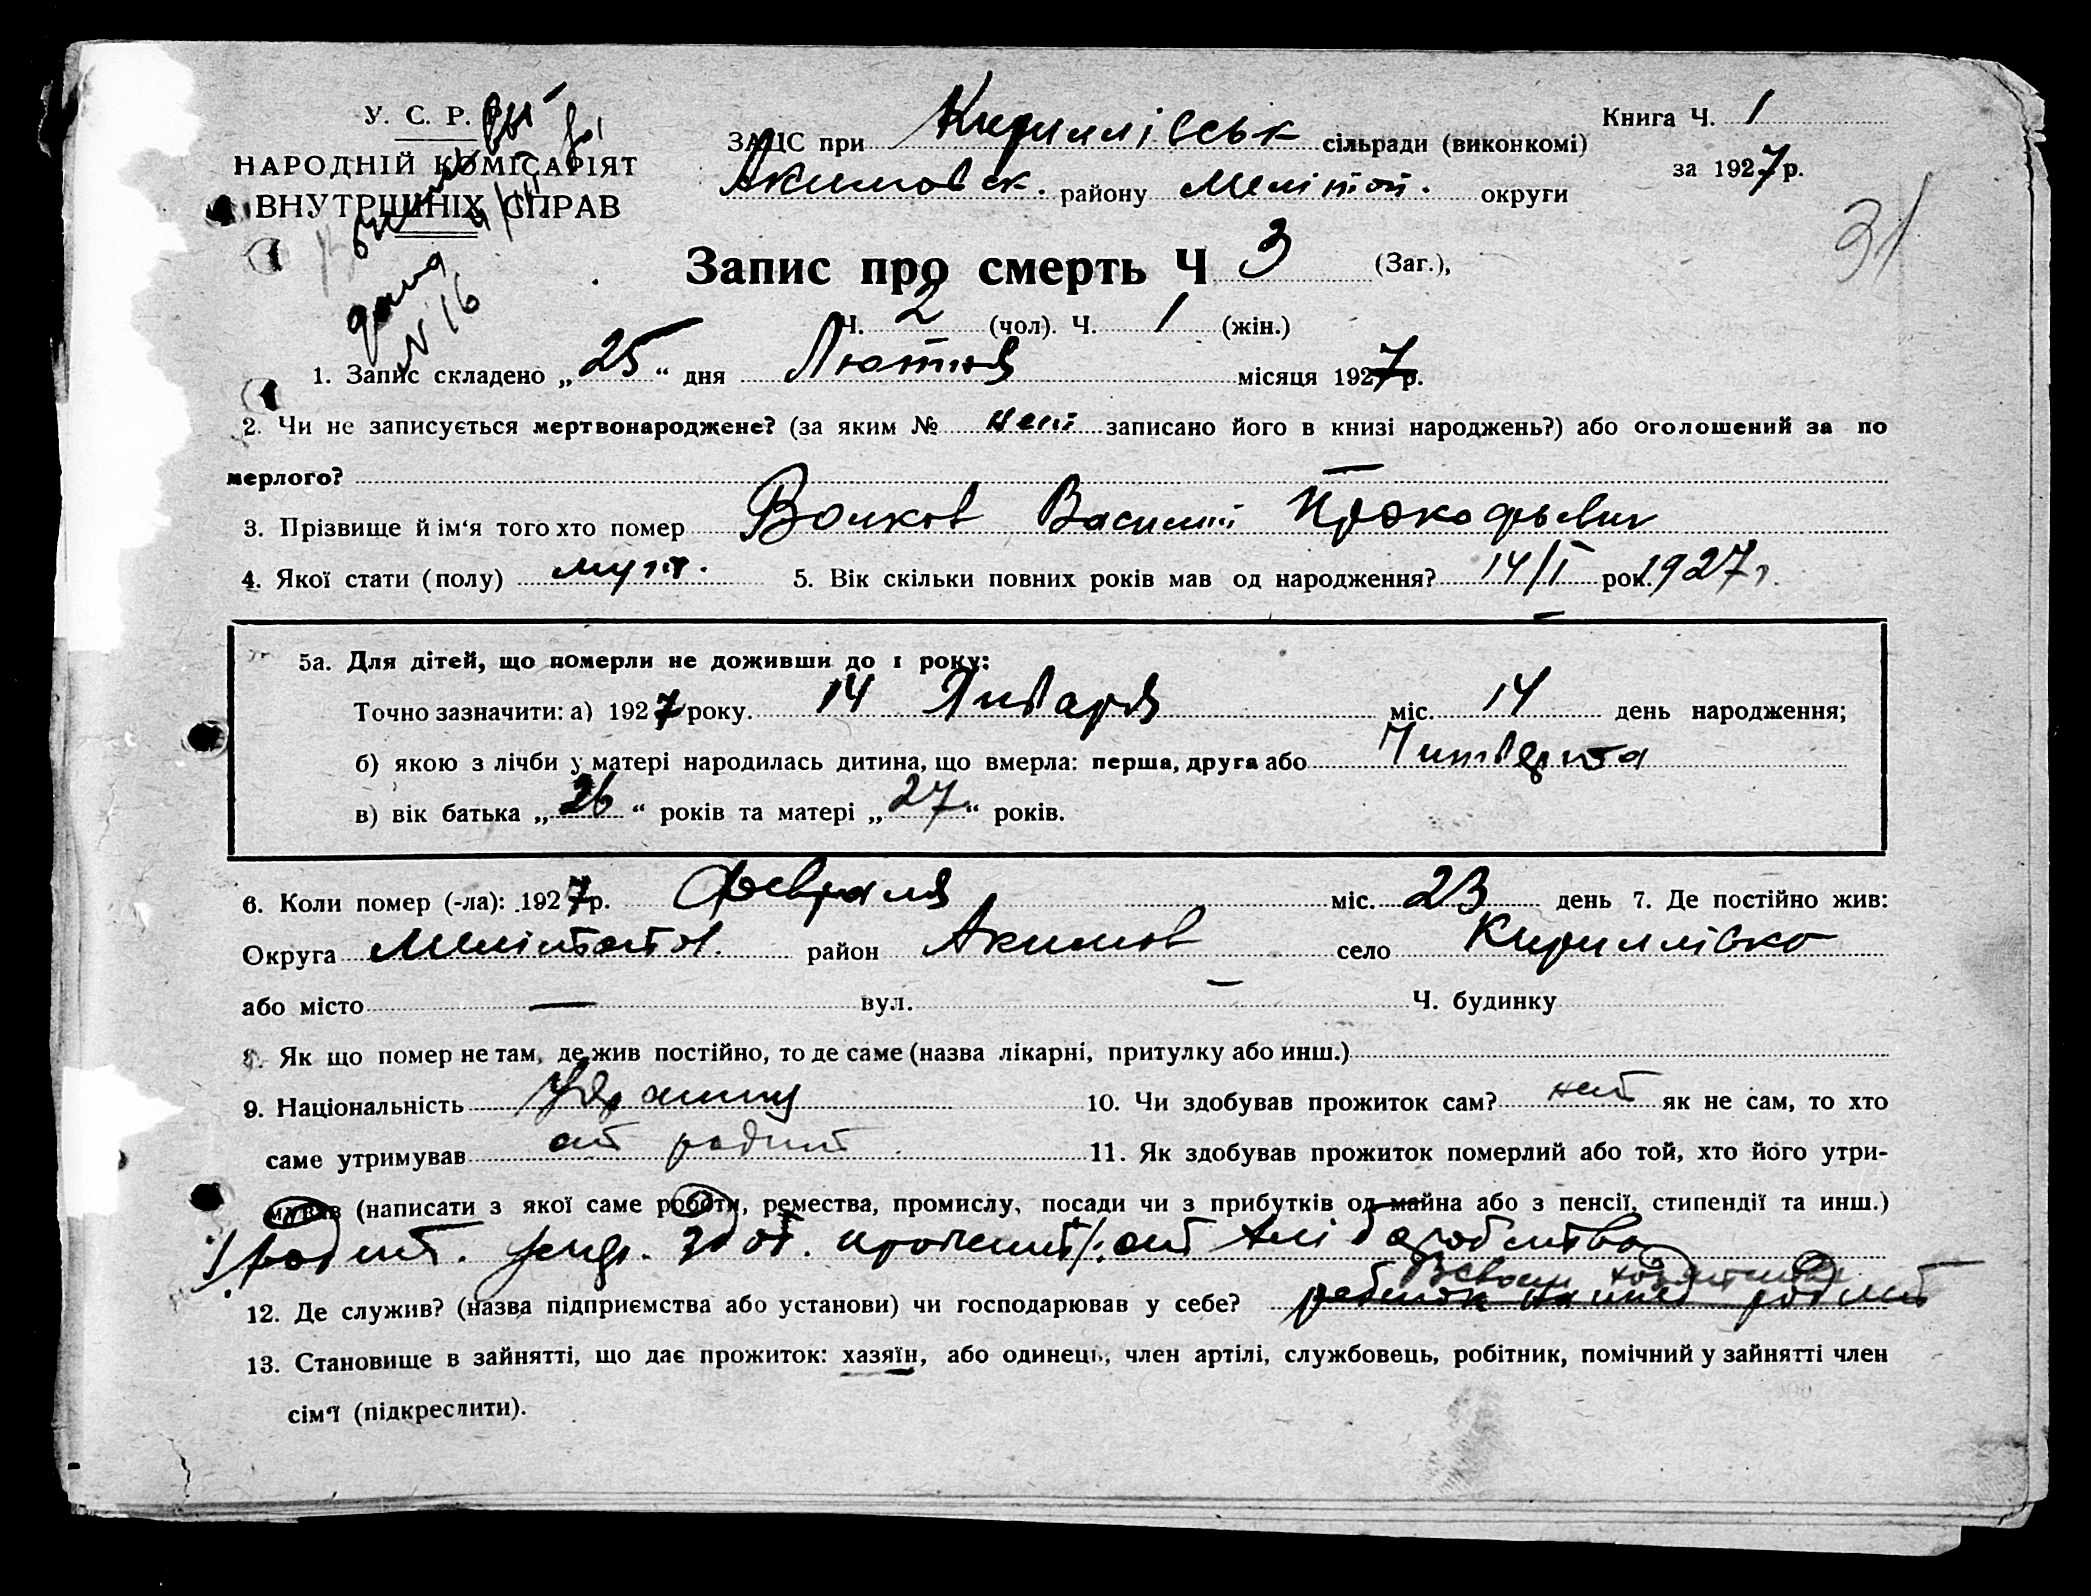 У. С. Р. Р.
НАРОДНІЙ КОМІСАРІЯТ
ВНУТРІШНІХ СПРАВ
дана
N 16
ЗАГС при Кириллівськ сільради (виконкомі)
Акимовск. району Мелітоп. округи
Книга Ч. 1
за 1927 р.
31
Запис про смерть Ч 3 (Заг.),
Ч. 2 (чол). Ч. 1 (жін.)
1. Запис складено „25“ дня Лютня місяця 1927 р.
2. Чи не записується мертвонароджене? (за яким № нет записано його в книзі народжень?) або оголошений за по
мерлого?
3. Прізвище й ім‘я того хто помер Волков Василий Прокофьевич
4. Якої стати (полу) муж. 5. Вік скільки повних років мав од народження? 14/I рок. 1927 г.
5а. Для дітей, що померли не доживши до 1 року:
Точно зазначити: а) 1927 року. 14 Января міс. 14 день народження;
б) якою з лічби у матері народилась дитина, що вмерла: перша, друга або Читверта
в) вік батька „26“ років та матері „27“ років.
6. Коли помер (-ла): 1927 р. Февраля міс. 23 день 7. Де постійно жив:
Округа Мелітопол. район Акимов село Кириллівка
або місто — вул. — Ч. будинку
8. Як що помер не там, де жив постійно, то де саме (назва лікарні, притулку або инш.)
9. Національність Украинц 10. Чи здобував прожиток сам? нет як не сам, то хто
саме утримував от родит 11. Як здобував прожиток померлий або той, хто його утри-
мував (написати з якої саме роботи, ремества, промислу, посади чи з прибутків од майна або з пенсії, стипендії та инш.)
родит. от
В своем хозяйстве
12. Де служив? (назва підприємства або установи) чи господарював у себе? ребенок родит
13. Становище в зайнятті, що дає прожиток: хазяїн, або одинець, член артілі, службовець, робітник, помічний у зайнятті член
сім‘ї (підкреслити).